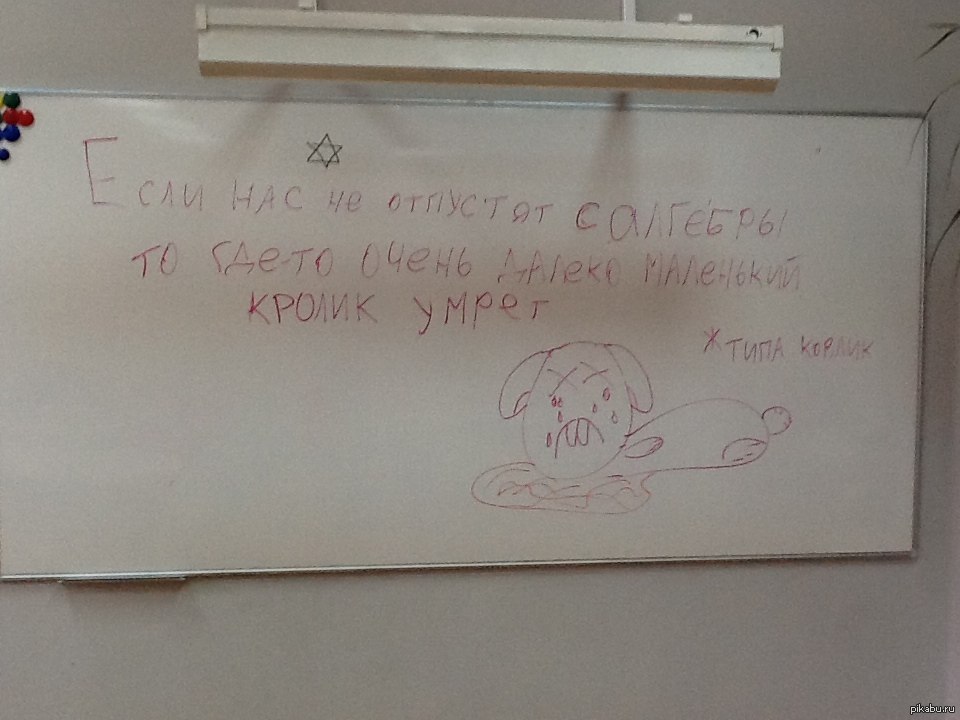 Если нас не отпустят с алгебры
то где-то очень далеко маленький
кролик умрет
*типа корлик
pikabu.ru